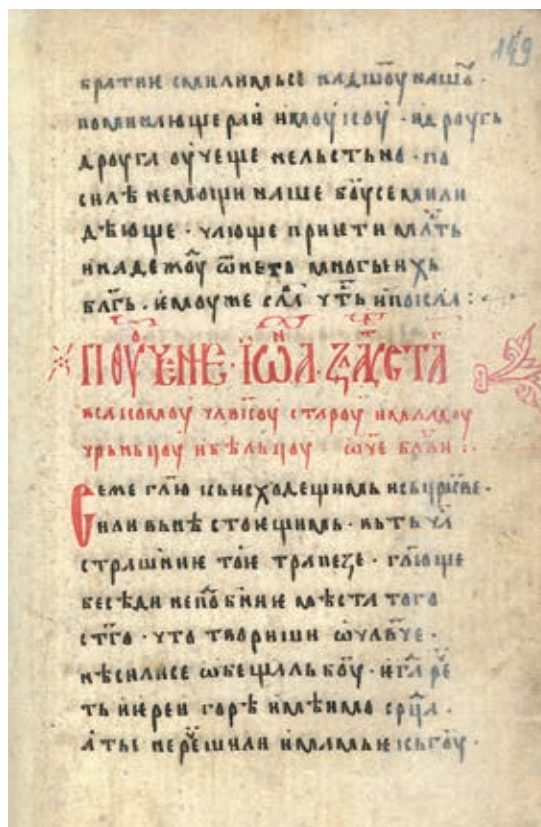 149
братиѥ смилимьсе надш҃оу нашѡ҃ ·
помилꙋюще
дроуга оучеще нельстьно · по
силѣ немощи наше б҃оу се мили
дѣюще · чающе приѥти мл҃ть
и надеждоу многыихь
бл҃гь · ѥмоуже сла҃ чть҃ и поколꙗ :
поꙋ҃чениѥ · їѡ҃а · златоꙋста҃
всакомоу чл҃вкоу староу и младоу
чрьньцоу и бѣльцоу ѡч҃е бл҃ви :·
Сеже гл҃ю исьисходещимь исьцр҃кве ·
или вьнѣ стоѥщимь · вьть ча҃
страшниѥ тоѥ трапезе · гл҃юще
бесѣди неп҃обниѥ мѣста того
ст҃го · что твориши ѡ чл҃вче ·
нѣси ли се ѡбещаль б҃оу · ѥгд҃а рч҃е
ть иѥреи горѣ имѣимо ср҃ца ·
а ты реч҃еши или имамы кь г҃оу ·